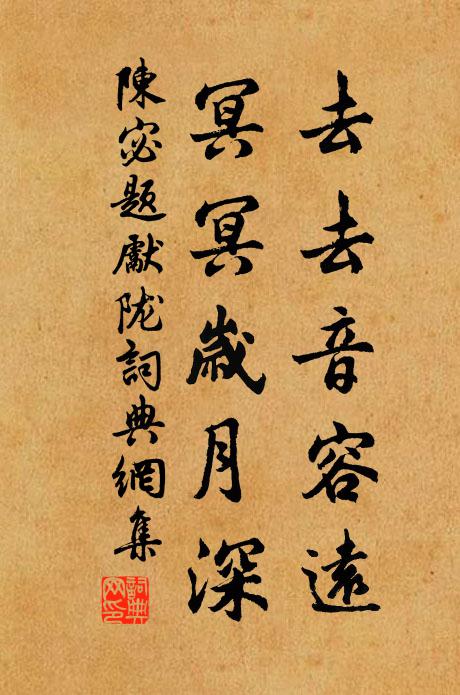 去去音容遠
冥冥歲月深
陳宓題獻陇詞典網集
詞典
网印